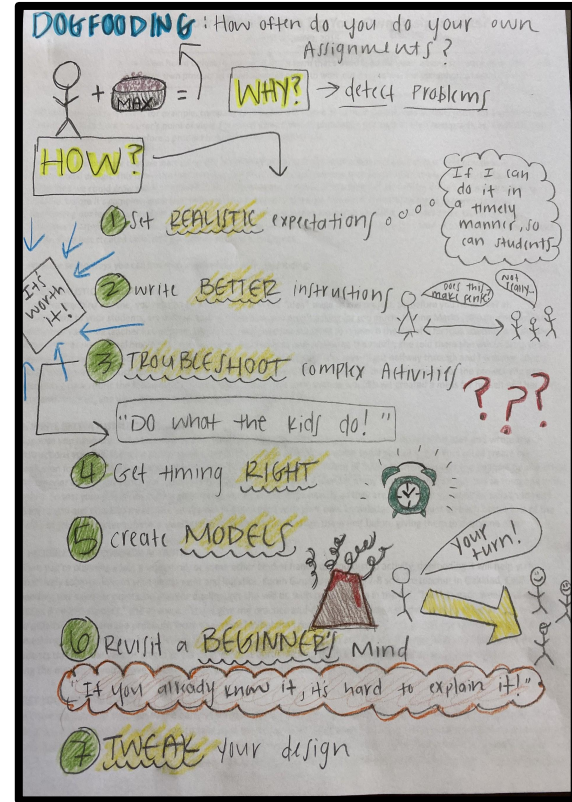 DOGFOODING: How often do you do your own
Assignments?
+ MAX =
WHY? → detect problems
HOW?
If I can
do it in
a timely
manner, so
can students
1 Set REALISTIC expectations
It's
worth
it!
2 write BETTER instructions
Does this
make sense?
Not
really..
3 TROUBLESHOOT complex Activities
???
"Do what the kids do!"
4 Get timing RIGHT
5 create MODELS
Your
turn!
6 Revisit a BEGINNER'S Mind
"If you already know it, it's hard to explain it!"
7 TWEAK your design